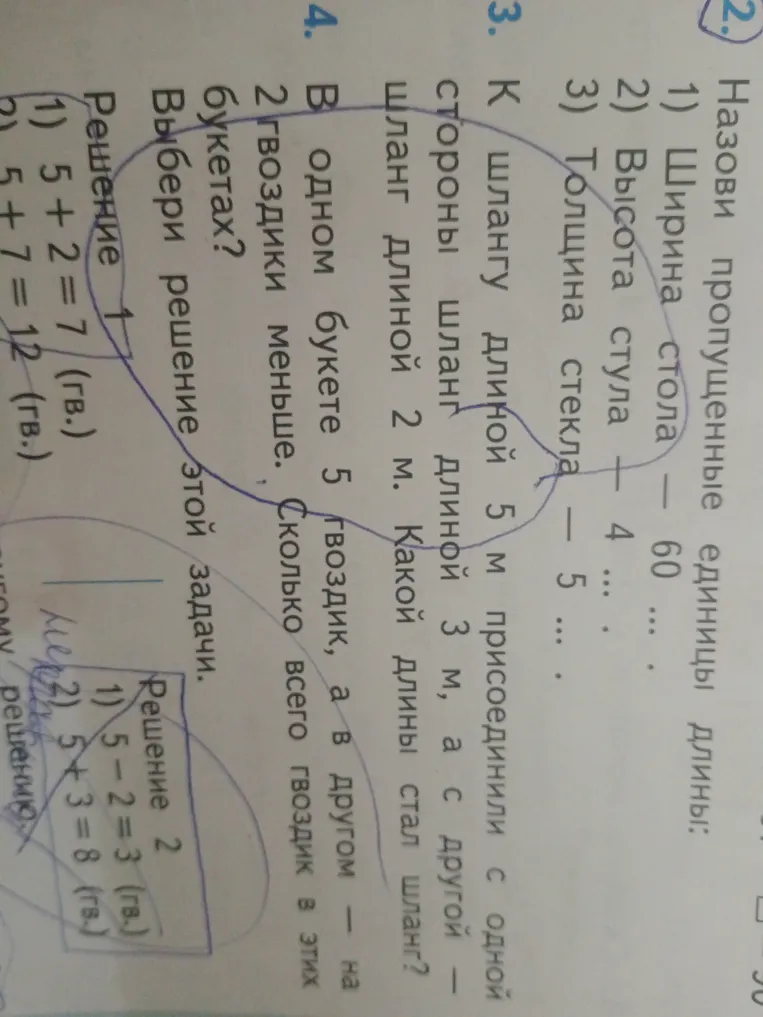 2. Назови пропущенные единицы длины:
1) Ширина стола — 60 ... .
2) Высота стула — 4 ... .
3) Толщина стекла — 5 ... .
3. К шлангу длиной 5 м присоединили с одной
стороны шланг длиной 3 м, а с другой —
шланг длиной 2 м. Какой длины стал шланг?
4. В одном букете 5 гвоздик, а в другом — на
2 гвоздики меньше. Сколько всего гвоздик в этих
букетах?
Выбери решение этой задачи.
Решение 1
1) 5 + 2 = 7 (гв.)
2) 5 + 7 = 12 (гв.)
Решение 2
1) 5 − 2 = 3 (гв.)
2) 5 + 3 = 8 (гв.)
решению.